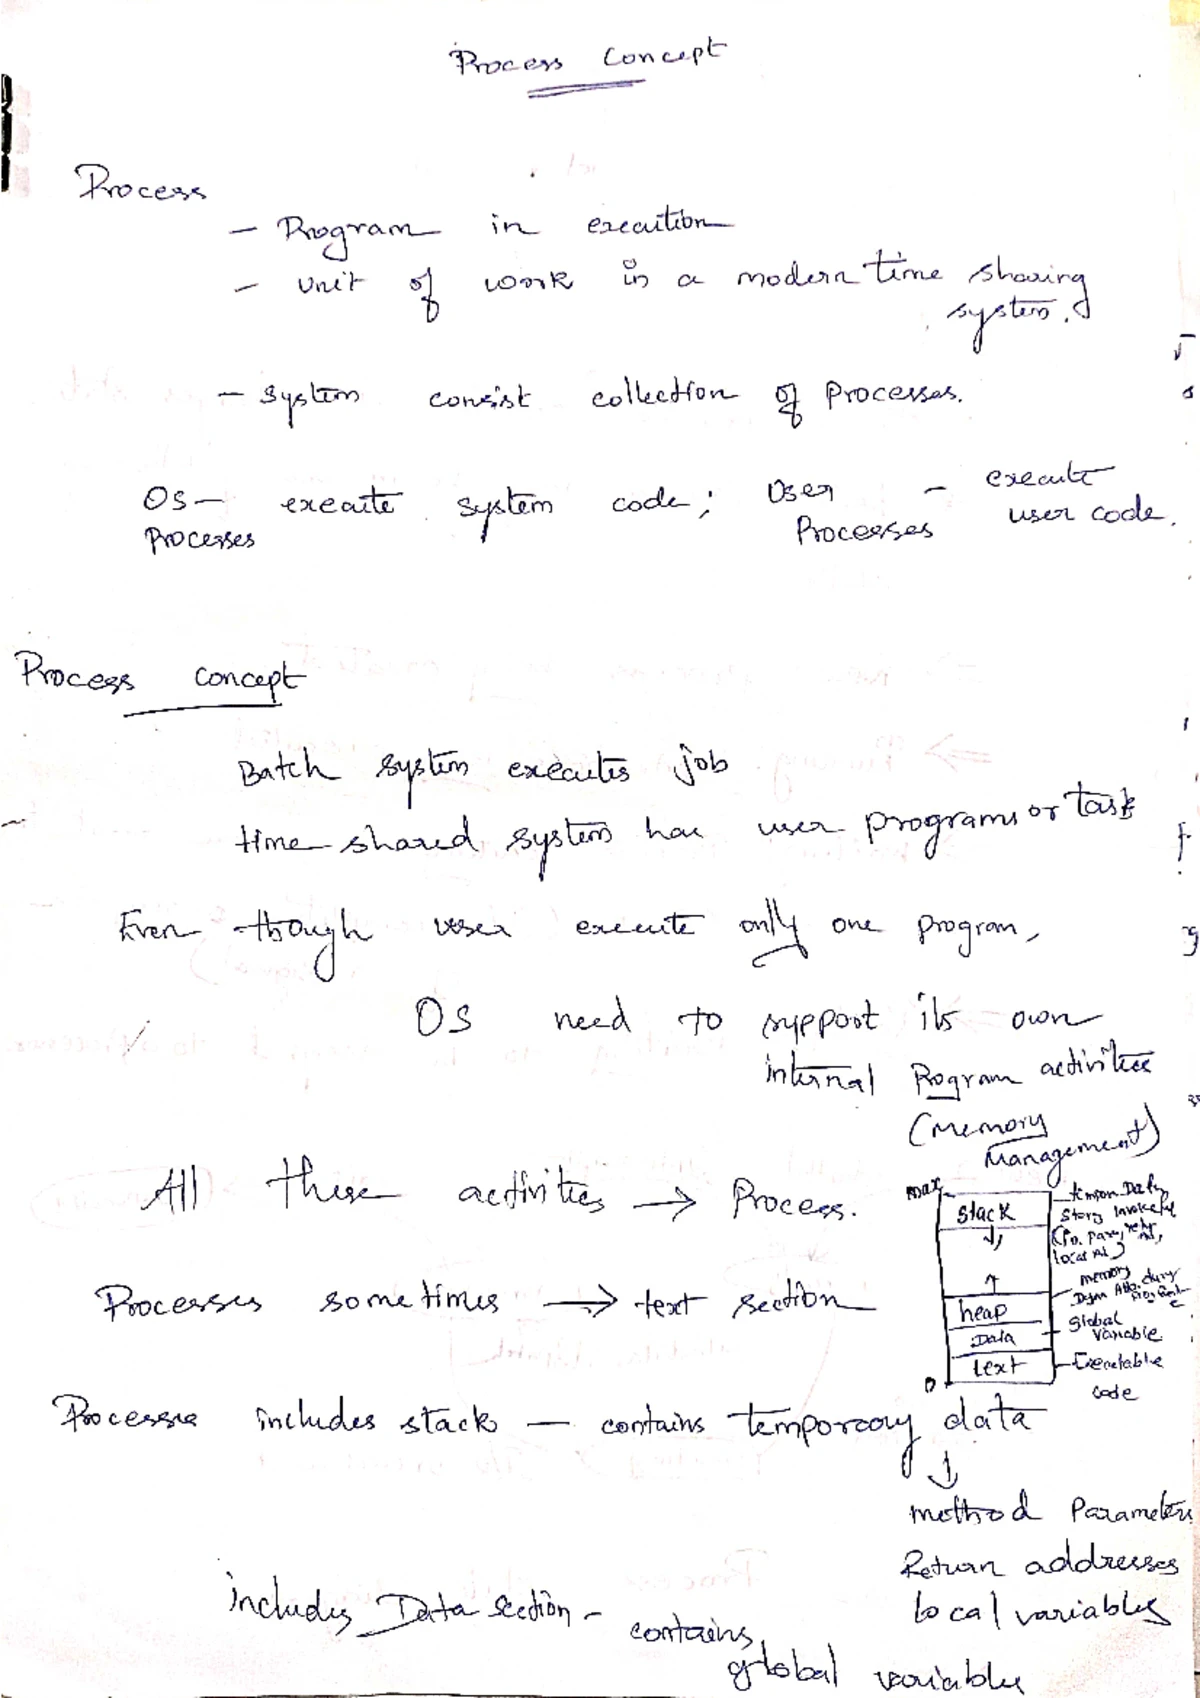 Process Concept
Process
- Program in execution
- Unit of work in a modern time sharing
system.
- System consist collection of Processes.
OS - execute system code; User - execute
Processes Processes user code.
Process concept
Batch system executes job
time shared system has user programs or task
Even though user execute only one program,
OS need to support its own
internal Program activities
(Memory
Management)
All these activities → Process.
max
stack
↓
↑
heap
Data
text
0
local
memory
Global
Variable
Executable
code
Processes sometimes → text section
Processes includes stack - contains temporary data
↓
method Parameters
Return addresses
local variables
includes Data section - contains
global variables